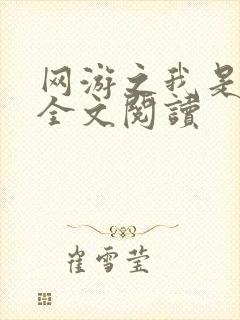 网游之我是
全文阅读
崔雪莹